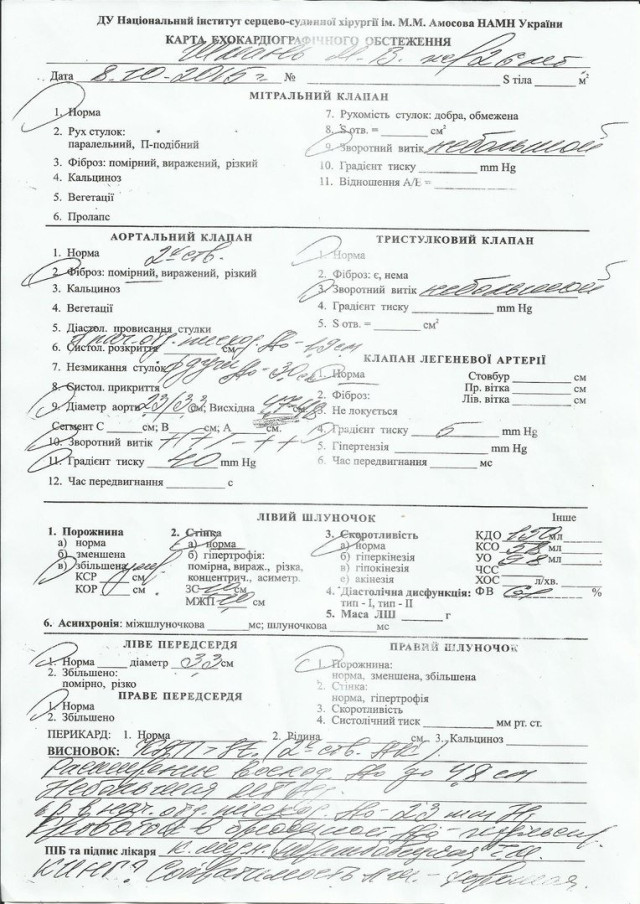 ДУ Національний інститут серцево-судинної хірургії ім. М.М. Амосова НАМН України
КАРТА ЕХОКАРДІОГРАФІЧНОГО ОБСТЕЖЕННЯ
26 лет
Дата 8.10-2015 г. № S тіла м²
МІТРАЛЬНИЙ КЛАПАН
1. Норма
2. Рух стулок:
паралельний, П-подібний
3. Фіброз: помірний, виражений, різкий
4. Кальциноз
5. Вегетації
6. Пролапс
7. Рухомість стулок: добра, обмежена
8. S отв. = см²
9. Зворотний витік небольшой
10. Градієнт тиску mm Hg
11. Відношення А/Е =
АОРТАЛЬНИЙ КЛАПАН
1. Норма 2х ств.
2. Фіброз: помірний, виражений, різкий
3. Кальциноз
4. Вегетації
5. Діастол. провисання стулки
6. Систол. розкриття см
7. Незмикання стулок
8. Систол. прикриття
9. Діаметр аорти 23/33 см; Висхідна см.
Сегмент С см; В см; А см.
10. Зворотний витік
11. Градієнт тиску 40 mm Hg
12. Час передвигання с
ТРИСТУЛКОВИЙ КЛАПАН
1. Норма
2. Фіброз: є, нема
3. Зворотний витік небольшой
4. Градієнт тиску mm Hg
5. S отв. = см²
КЛАПАН ЛЕГЕНЕВОЇ АРТЕРІЇ
1. Норма Стовбур см
2. Фіброз: Пр. вітка см
Лів. вітка см
3. Не локується
4. Градієнт тиску 5 mm Hg
5. Гіпертензія mm Hg
6. Час передвигання мс
ЛІВИЙ ШЛУНОЧОК
1. Порожнина
а) норма
б) зменшена
в) збільшена
КСР см
КОР см
2. Стінка
а) норма
б) гіпертрофія:
помірна, вираж., різка,
концентрич., асиметр.
ЗС см
МЖП см
3. Скоротливість
а) норма
б) гіперкінезія
в) гіпокінезія
є) акінезія
4. Діастолічна дисфункція:
тип - I, тип - II
5. Маса ЛШ г
Інше
КДО 150 мл
КСО 58 мл
УО мл
ЧСС
ХОС л/хв.
ФВ %
6. Асинхронія: міжшлуночкова мс; шлуночкова мс
ЛІВЕ ПЕРЕДСЕРДЯ
1. Норма діаметр 33 см
2. Збільшено:
помірно, різко
ПРАВЕ ПЕРЕДСЕРДЯ
1. Норма
2. Збільшено
ПРАВИЙ ШЛУНОЧОК
1. Порожнина:
норма, зменшена, збільшена
2. Стінка:
норма, гіпертрофія
3. Скоротливість
4. Систолічний тиск мм рт. ст.
ПЕРИКАРД: 1. Норма 2. Рідина см 3. Кальциноз
ВИСНОВОК: (2х ств. АК)
Расширение восход. Ао до 4,8 см
Небольшая
нач. отд. нисход. Ао - 23 mm Hg
в брюшной Ао -
ПІБ та підпис лікаря
Сократимость хорошая.